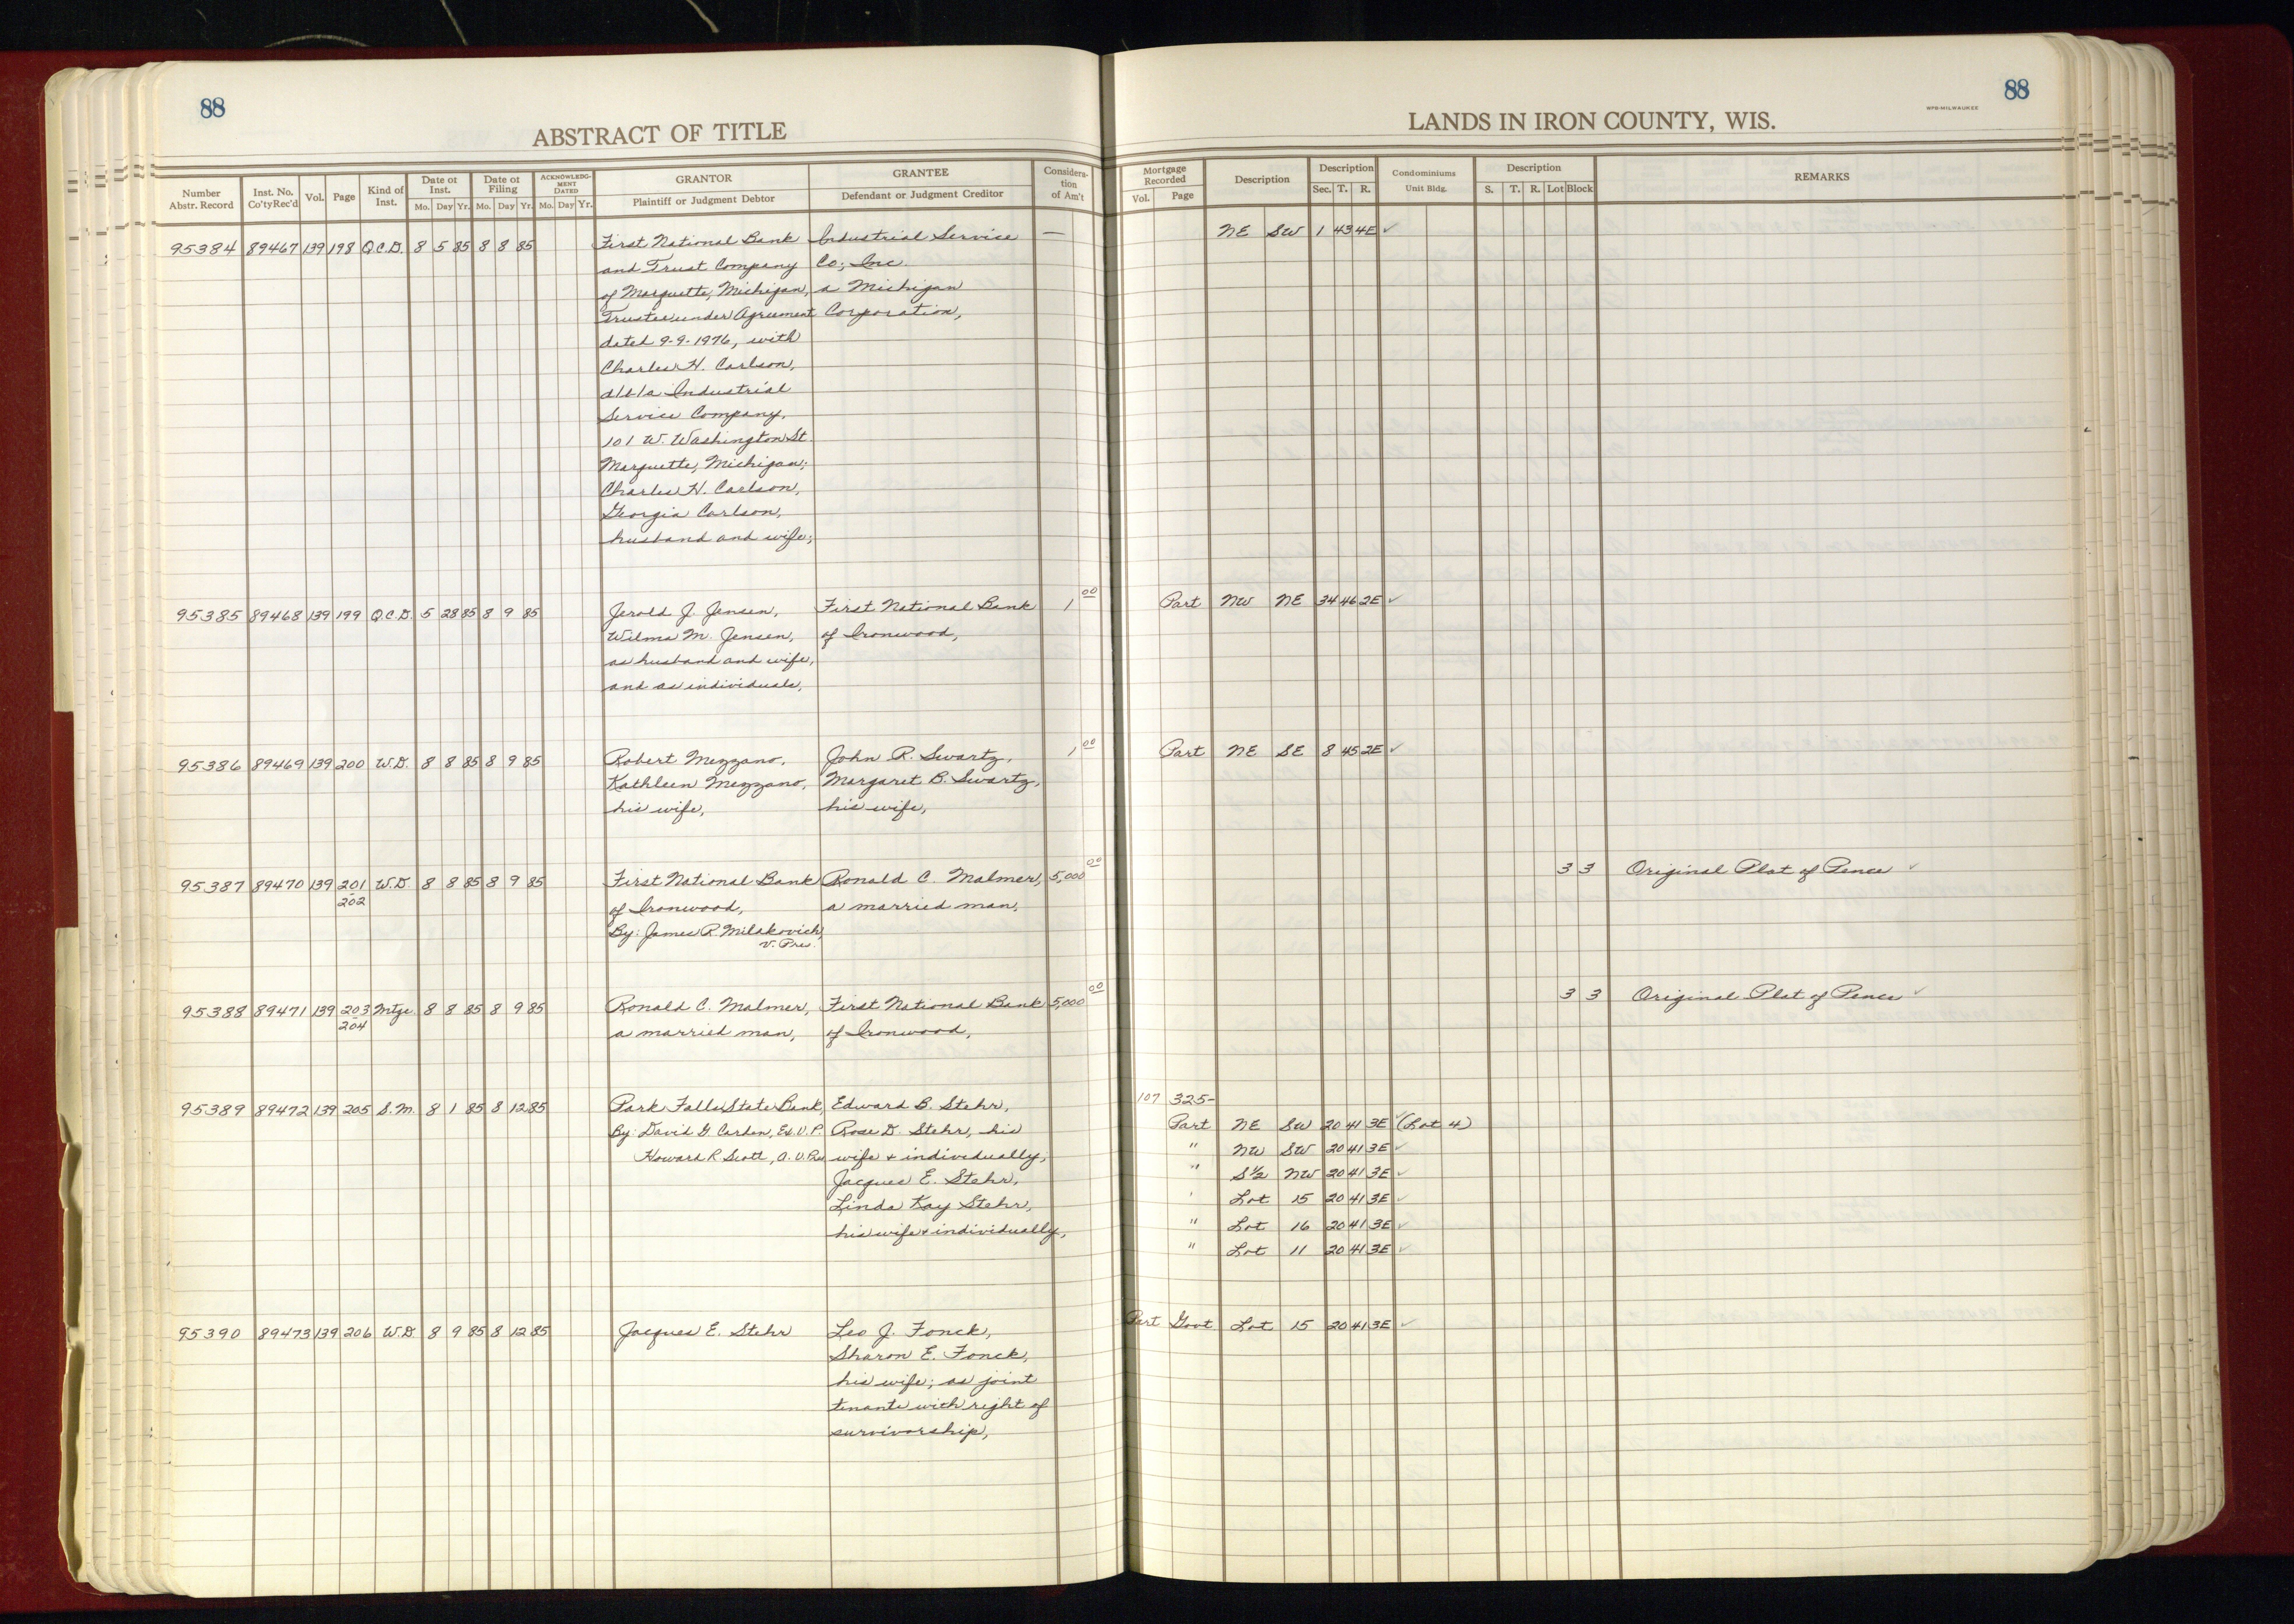 88
ABSTRACT OF TITLE
Number Abstr. Record
Inst. No. Co'ty Rec'd
Vol.
Page
Kind of Inst.
Date of Inst.
Mo. Day Yr.
Date of Filing
Mo. Day Yr.
ACKNOWLEDGMENT DATED
Mo. Day Yr.
GRANTOR
Plaintiff or Judgment Debtor
GRANTEE
Defendant or Judgment Creditor
Consideration of Am't
88
WPB-MILWAUKEE
LANDS IN IRON COUNTY, WIS.
Mortgage Recorded
Vol. Page
Description
Description
Sec. T. R.
Condominiums
Unit Bldg.
Description
S. T. R. Lot Block
REMARKS
95384 89467 139 198 Q.C.D. 8 5 85 8 8 85 First National Bank Industrial Service — NE SW 1 43 4E ✓
and Trust Company Co; Inc.
of Marquette, Michigan, a Michigan
Trustee under Agreement Corporation,
dated 9-9-1976, with
Charles H. Carlson,
d/b/a Industrial
Service Company,
101 W. Washington St.
Marquette, Michigan;
Charles H. Carlson,
Georgia Carlson,
husband and wife;
95385 89468 139 199 Q.C.D. 5 28 85 8 9 85 Jerold J. Jensen, First National Bank 1 00 Part NW NE 34 46 2E ✓
Wilma M. Jensen, of Ironwood,
as husband and wife,
and as individuals,
95386 89469 139 200 W.D. 8 8 85 8 9 85 Robert Mezzano, John R. Swartz, 1 00 Part NE SE 8 45 2E ✓
Kathleen Mezzano, Margaret B. Swartz,
his wife, his wife,
95387 89470 139 201 W.D. 8 8 85 8 9 85 First National Bank Ronald C. Malmer, 5,000 00 3 3 Original Plat of Pence ✓
202 of Ironwood, a married man,
By: James R. Milakovich,
V. Pres.
95388 89471 139 203 Mtge. 8 8 85 8 9 85 Ronald C. Malmer, First National Bank 5,000 00 3 3 Original Plat of Pence ✓
204 a married man, of Ironwood,
95389 89472 139 205 S.M. 8 1 85 8 12 85 Park Falls State Bank, Edward B. Stehr, 107 325-
By: David G. Ex. V.P. Rose D. Stehr, his Part NE SW 20 41 3E ✓ (Lot 4)
Howard R Scott, A. V. Pres wife & individually, " NW SW 20 41 3E ✓
Jacques E. Stehr, " S½ NW 20 41 3E ✓
Linda Kay Stehr, ' Lot 15 20 41 3E ✓
his wife & individually, " Lot 16 20 41 3E ✓
" Lot 11 20 41 3E ✓
95390 89473 139 206 W.D. 8 9 85 8 12 85 Jacques E. Stehr Leo J. Fonck, Part Govt Lot 15 20 41 3E ✓
Sharon E. Fonck,
his wife; as joint
tenants with right of
survivorship,